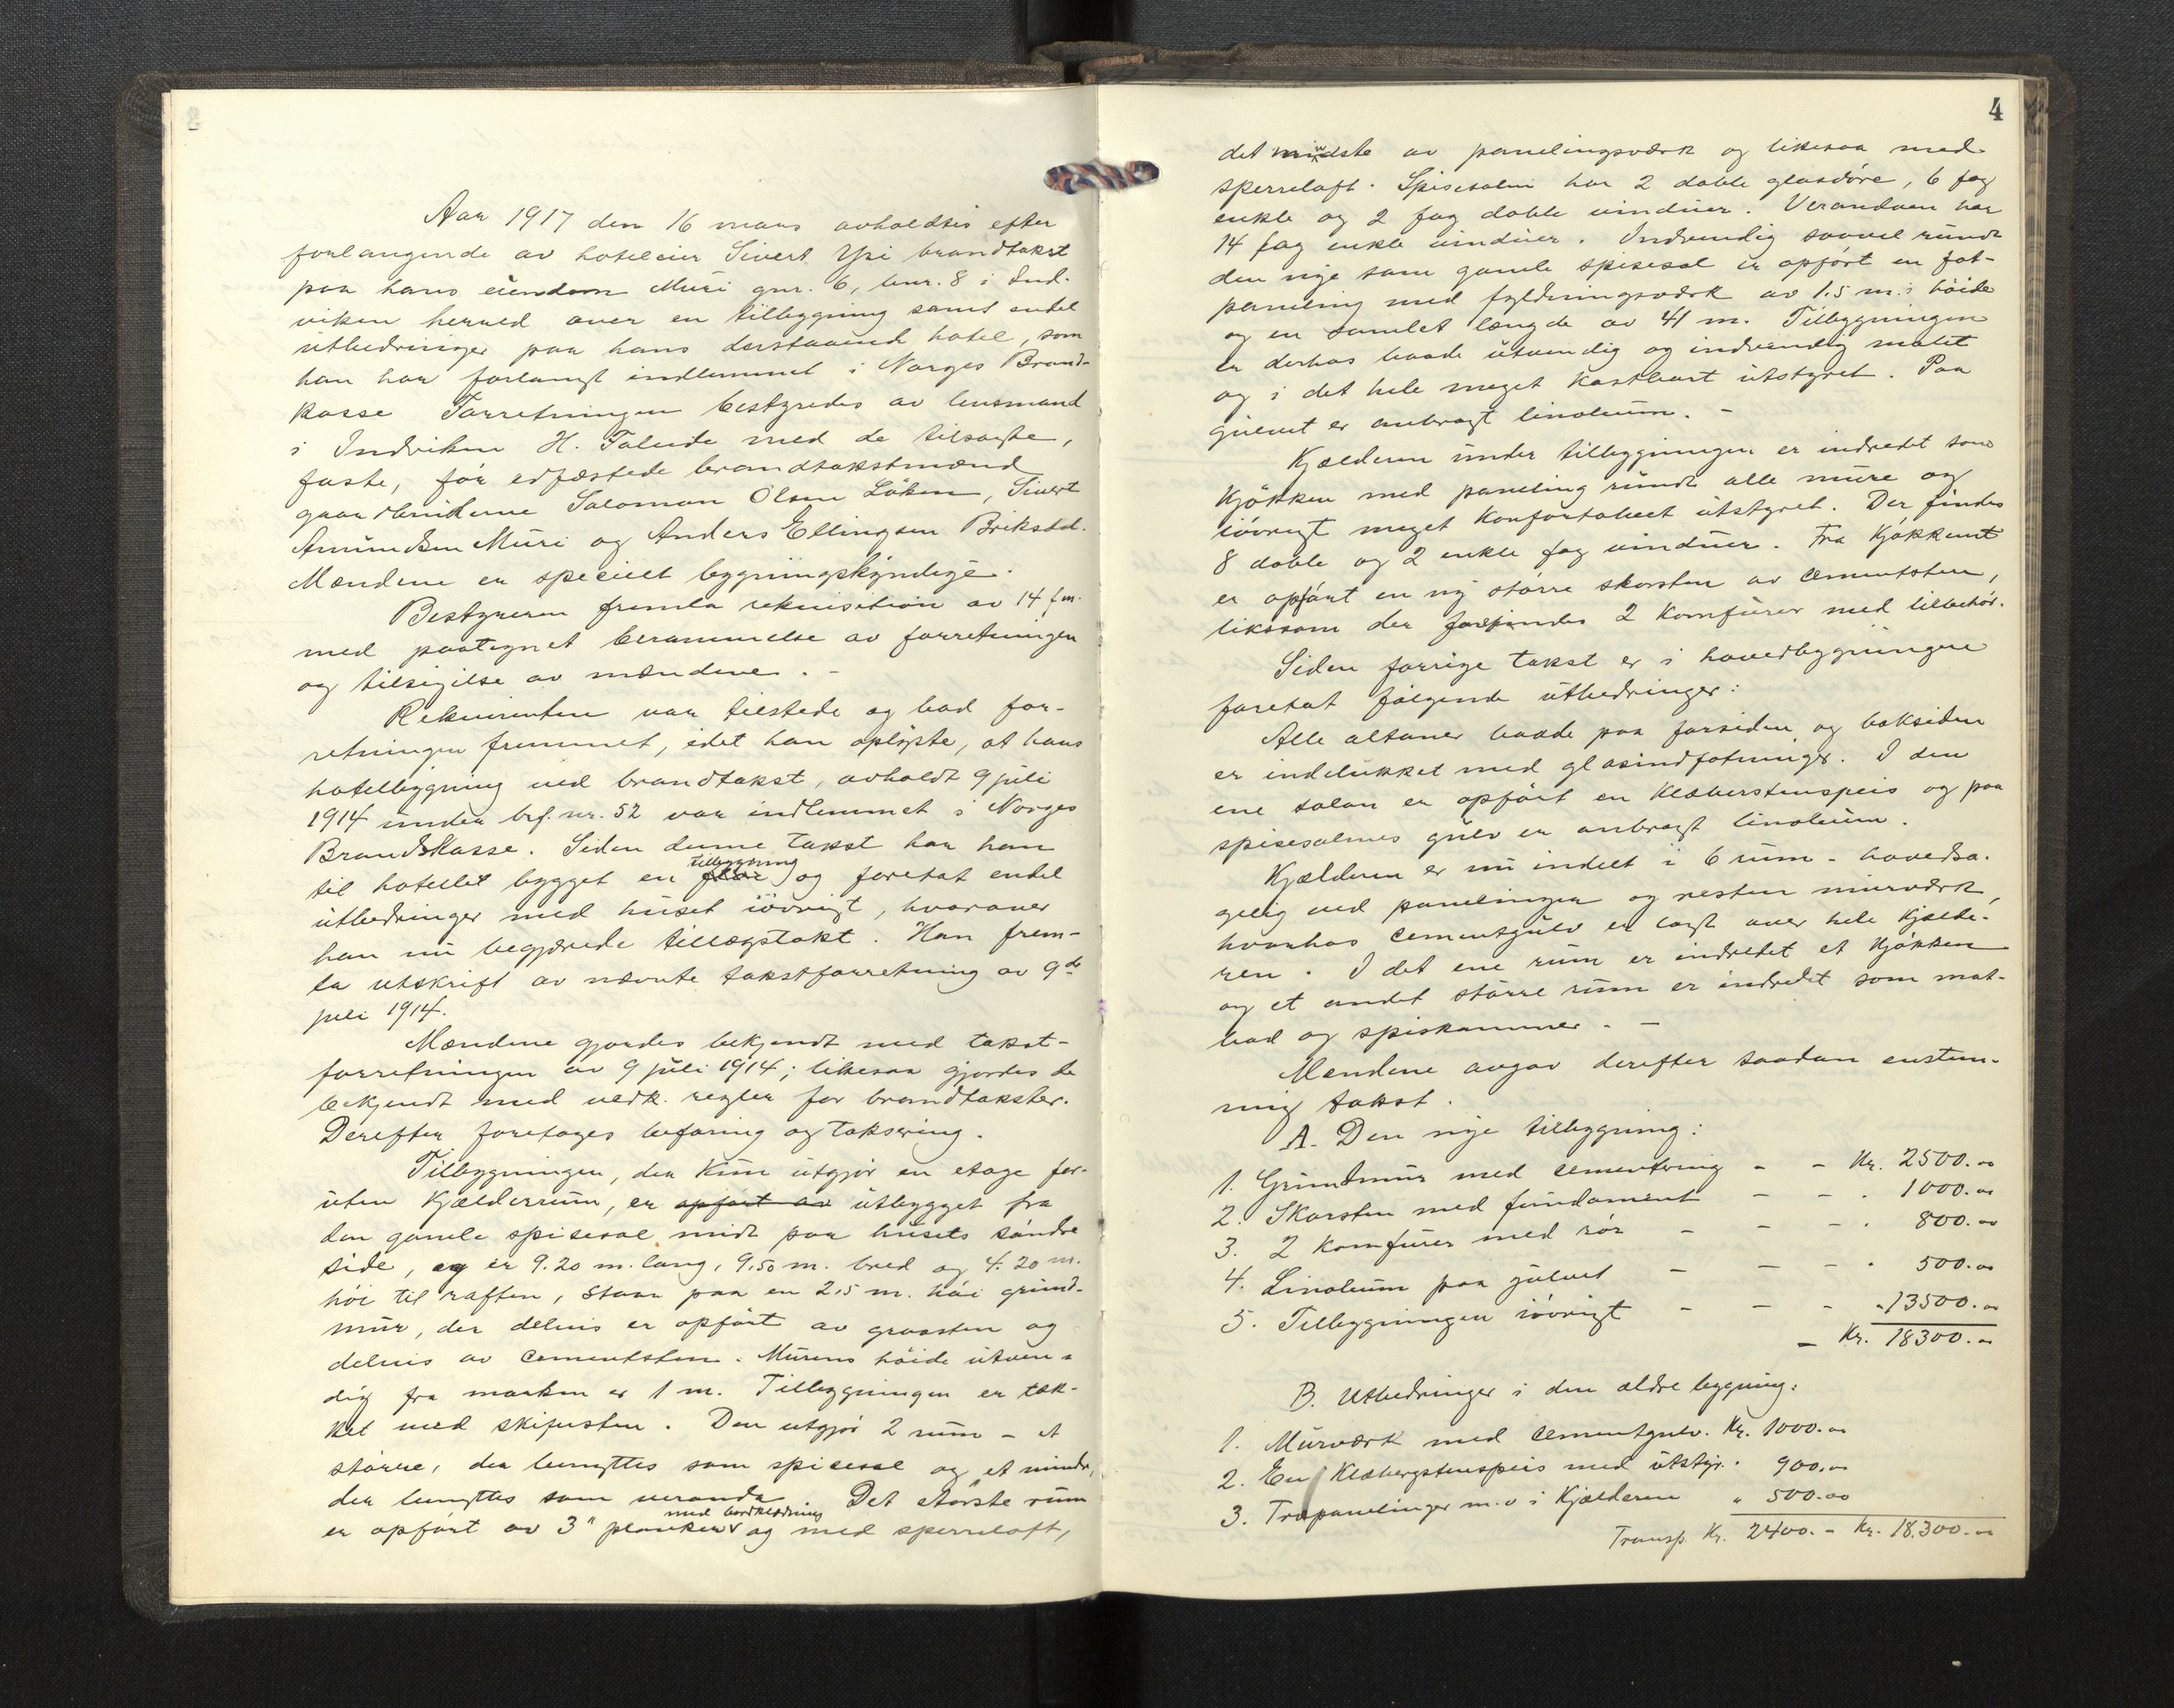 Aar 1917 den 16 mars avholdtes efter
forlangende av hoteleier Sivert Yri brandtakst
paa hans eiendom Muri gnr. 6, bnr. 8 i Ind-
viken herred over en tilbygning samt endel
utbedringer paa hans derstaaende hotel, som
han har forlangt indlemmet i Norges Brand-
kasse Forretningen bestyredes av lensmand
i Indviken H. Taleide med de tilsagte,
faste, før edfæstede brandtakstmænd
gaardbrukerne Salomon Olsen Løken, Sivert
Amundsen Muri og Anders Ellingsen Briksdal.
Mændene er specielt bygningskyndige.
Bestyreren fremla rekvisition av 14 f.m.
med paategnet berammelse av forretningen
og tilsigelse av mændene. –
Rekvirenten var tilstede og bad for-
retningen fremmet, idet han oplyste, at hans
hotelbygning ved brandtakst, avholdt 9 juli
1914 under brf. nr. 52 var indlemmet i Norges
Brandkasse. Siden denne takst har han
til hotellet bygget en tilbygning og foretat endel
utbedringer med huset iøvrigt, hvorover
han nu begjærede tillægstakst. Han frem-
la utskrift av nævnte takstforretning av 9de
juli 1914.
Mændene gjordes bekjendt med takst-
forretningen av 9 juli 1914; likesaa gjordes de
bekjendt med vedk. regler for brandtakster.
Derefter foretoges befaring og taksering.
Tilbygningen, der kun utgjør en etage for-
uten kjælderrum, er opført av utbygget fra
den gamle spisesal midt paa husets søndre
side, og er 9.20 m. lang, 9,50 m. bred og 4.20 m.
høi til raften, staar paa en 2,5 m. høi grund-
mur, der delvis er opført av graasten og
delvis av cementsten. Murens høide utven-
dig fra marken er 1 m. Tilbygningen er tæk-
ket med skifersten. Den utgjør 2 rum – et
større, der benyttes som spisesal og et mindre,
der benyttes som veranda Det største rum
er opført av 3" planker med bordklædning og med sperreloft,
4
det mindste av panelingsværk og likesaa med
sperreloft. Spisesalen har 2 doble glasdøre, 6 fag
enkle og 2 fag doble vinduer. Verandaen har
14 fag enkle vinduer. Indvendig saavel rundt
den nye som gamle spisesal er opført en fot-
paneling med fyldningsværk av 1.5 m. i høide
og en samlet længde av 41 m. Tilbygningen
er derhos baade utvendig og indvendig malet
og i det hele meget kostbart utstyret. Paa
gulvet er anbragt linoleum. –
Kjælderen under tilbygningen er indredet som
kjøkken med paneling rundt alle mure og
iøvrigt meget konfortabelt utstyret. Der findes
8 doble og 2 enkle fag vinduer. Fra kjøkkenet
er opført en ny større skorsten av cementsten,
likesom der forefindes 2 komfurer med tilbehør.
Siden forrige takst er i hovedbygningen
foretat følgende utbedringer:
Alle altaner baade paa forsiden og baksiden
er indelukket med glasindfatninger. I den
ene salon er opført en klæberstenspeis og paa
spisesalens gulv er anbragt linoleum.
Kjælderen er nu indelt i 6 rum – hovedsa-
gelig ved panelinger og resten murværk,
hvorhos cementgulv er lagt over hele kjælde-
ren. I det ene rum er indredet et kjøkken
og et andet større rum er indredet som mat-
bod og spiskammer. –
Mændene avgav derefter saadan enstem-
mig takst.
A. Den nye tilbygning:
1. Grundmur med cementering – – Kr. 2500.00
2. Skorsten med fundament – – . 1000.00
3. 2 komfurer med rør – – – . 800.00
4. Linoleum paa gulvet – – – . 500.00
5. Tilbygningen iøvrigt – – – . 13500.00
– Kr. 18300.00
B. Utbedringer i den ældre bygning:
1. Murværk med cementgulv. Kr. 1000.00
2. En Klæbergstenspeis med utstyr. . 900.00
3. Træpanelinger m.v i Kjælderen " 500.00
Transp. Kr. 2400. – Kr. 18.300.00